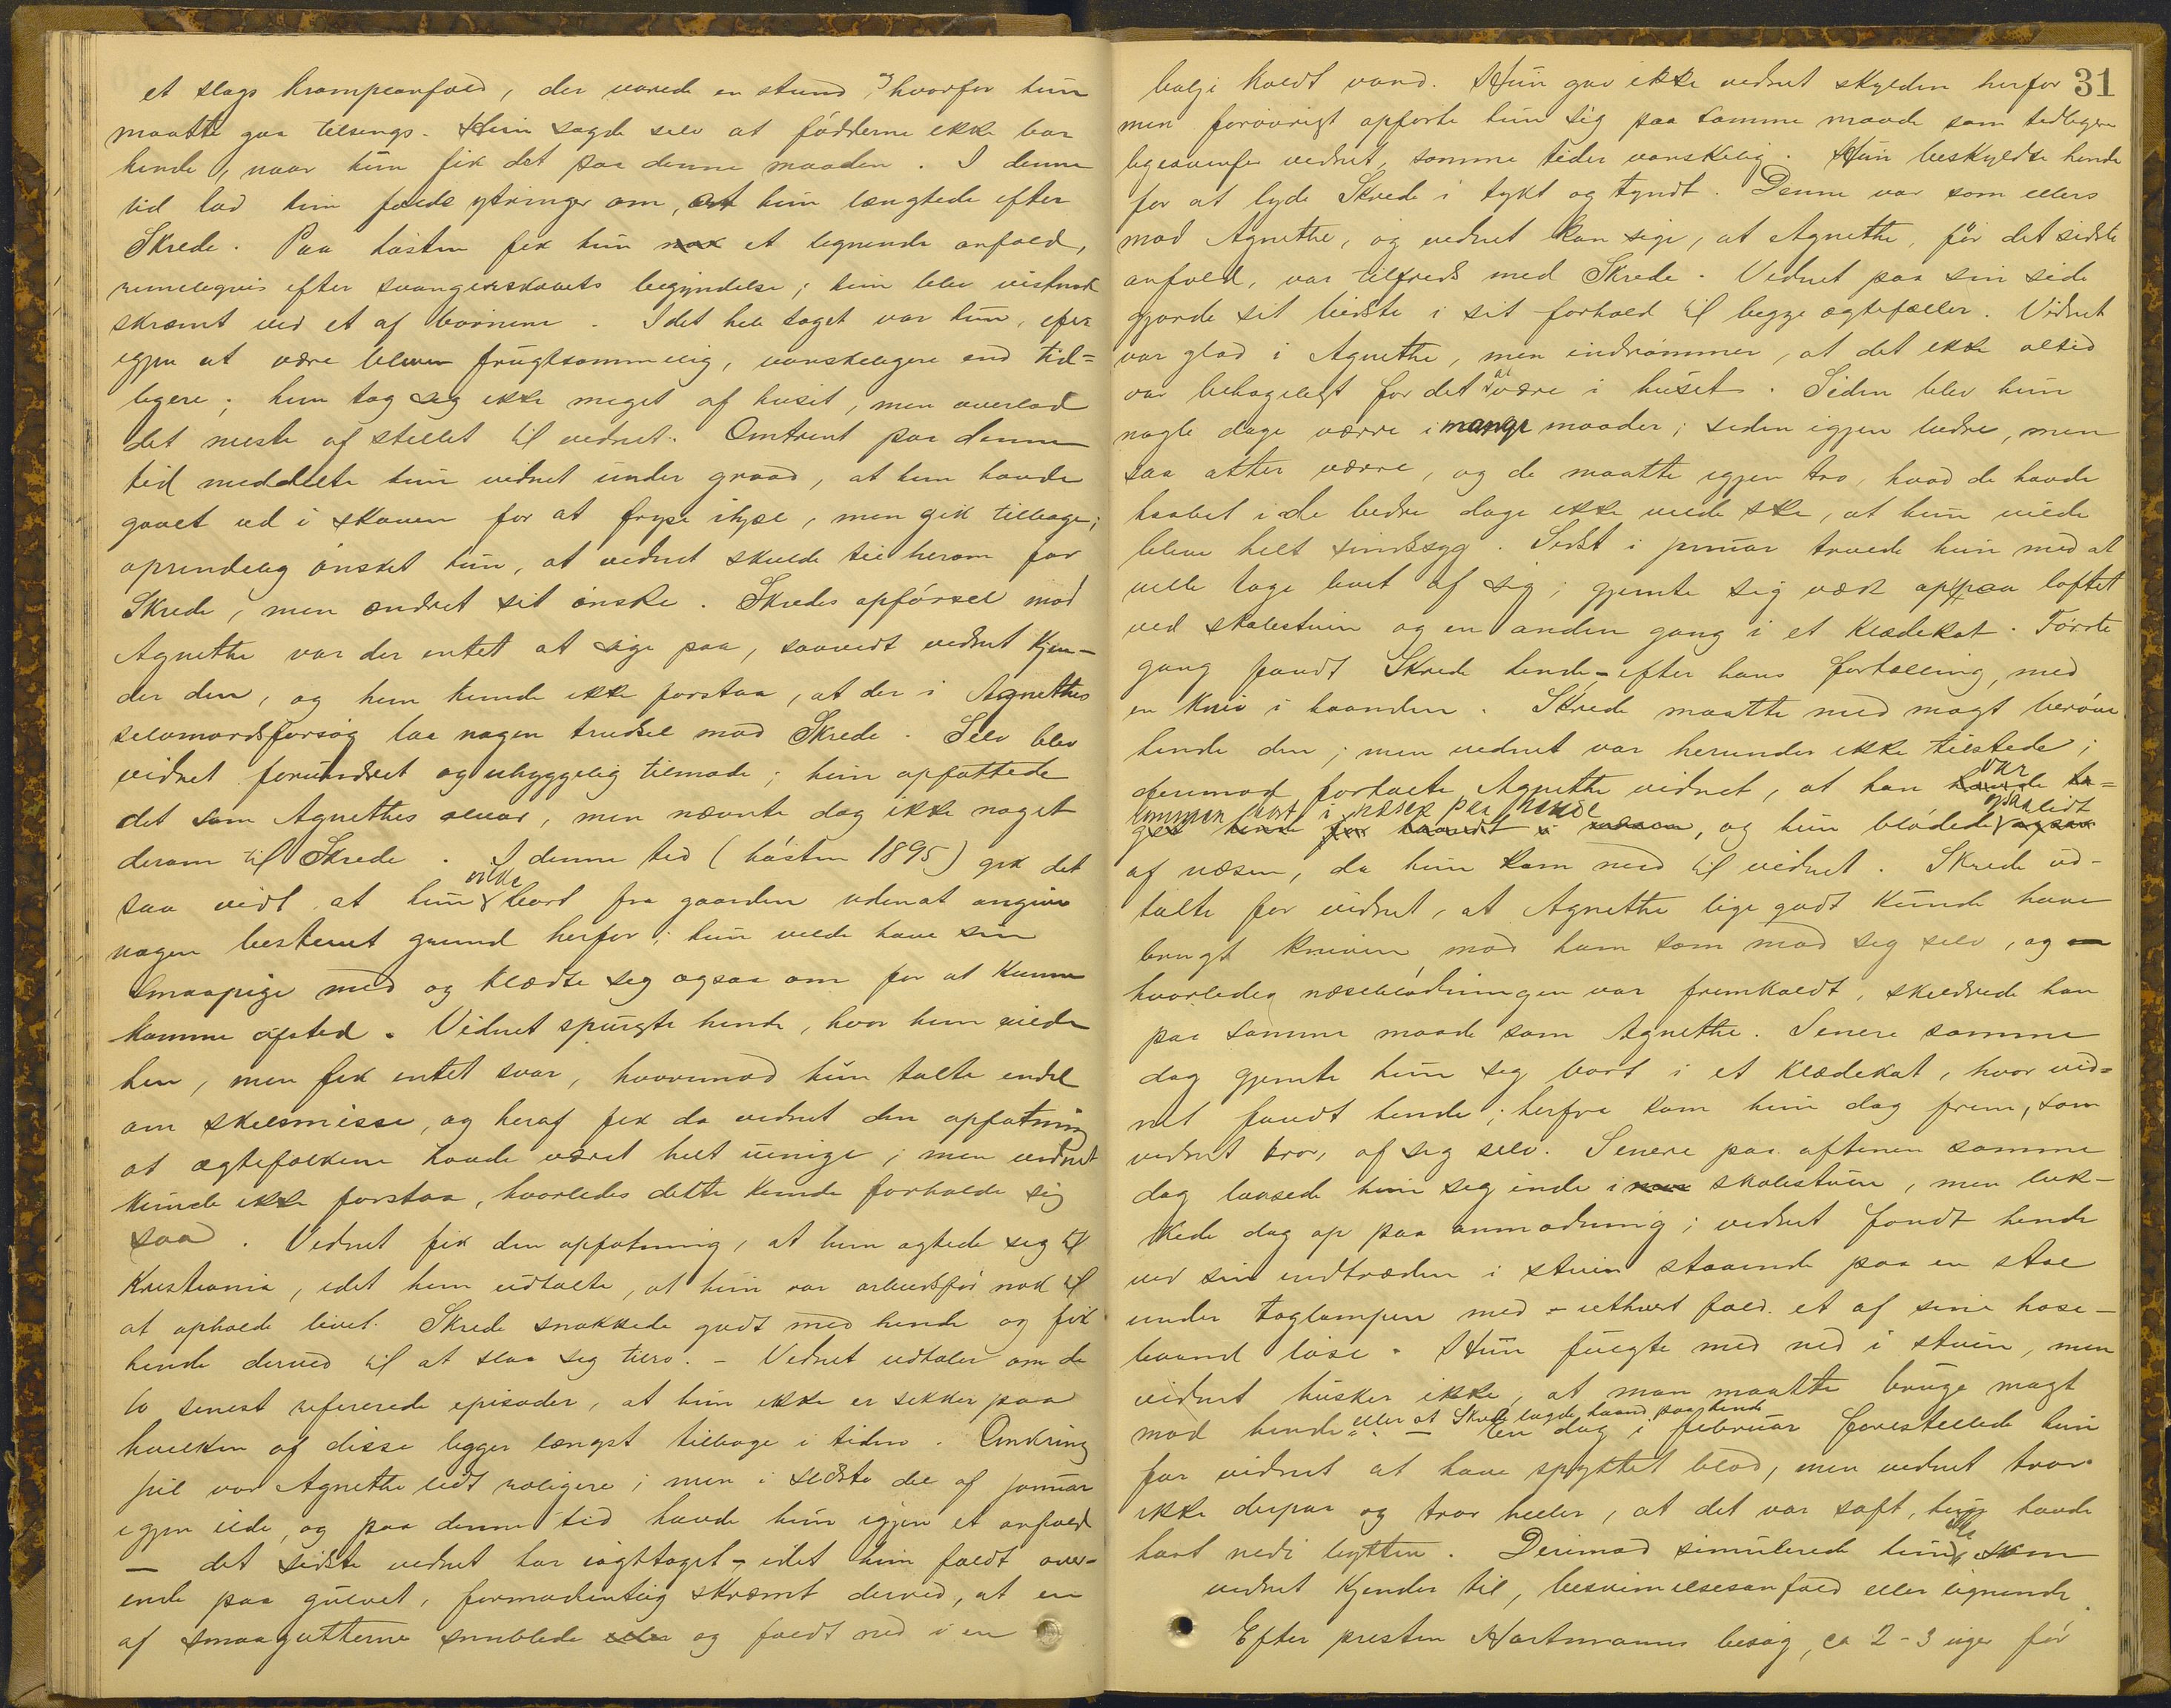 et slags krampeanfald, der varede en stund, hvorfor hun
maatte gaa tilsengs. Hun sagde selv at födderne ikke bar
hende, naar hun fik det paa denne maaden. I denne
tid lod hun falde ytringer om, at hun længtede efter
Skrede. Paa hösten fik hun nok et lignende anfald,
rimeligvis efter svangerskabets begyndelse; hun blev vistnok
skræmt ved et af börnene. I det hele taget var hun, efter
igjen at være bleven frugtsommelig, vanskeligere end tid=
ligere; hun tog sig ikke meget af huset, men overlod
det meste af stellet til vidnet. Omtrent paa denne
tid meddelte hun vidnet under graad, at hun havde
gaaet ud i skoven for at fryse ihjel, men gik tilbage;
oprindelig önsket hun, at vidnet skulde tie herom for
Skrede, men ændret sit önske. Skredes opförsel mod
Agnethe var der intet at sige paa, saavidt vidnet kjen-
der den, og hun kunde ikke forstaa, at der i Agnethes
selvmordsforsög laa nogen trudsel mod Skrede. Selv blev
vidnet forundret og uhyggelig tilmode; hun opfattede
det som Agnethes alvor, men nævnte dog ikke noget
derom til Skrede. I denne tid (hösten 1895) gik det
saa vidt at hun vilde bort fra gaarden uden at angive
nogen bestemt grund herfor; hun vilde have sin
smaapige med og klædte sig ogsaa om for at kunne
komme afsted. Vidnet spurgte hende, hvor hun vilde
hen, men fik intet svar, hvorimod hun talte endel
om skilsmisse, og heraf fik da vidnet den opfatning
at ægtefolkene havde været helt uenige; men vidnet
kunde ikke forstaa, hvorledes dette kunde forholde sig
saa. Vidnet fik den opfatning, at hun agtede sig til
Kristiania, idet hun udtalte, at hun var arbeidsför nok til
at opholde livet. Skrede snakkede godt med hende og fik
hende derved til at slaa sig tilro. - Vidnet udtaler om de
to senest refererede episoder, at hun ikke er sikker paa
hvilken af disse ligger længst tilbage i tiden. Omkring
jul var Agnethe lidt roligere; men i sidste del af januar
igjen ilde, og paa denne tid havde hun igjen et anfald
— det sidste vidnet har iagttaget -, idet hun faldt over-
ende paa gulvet, formodentlig skræmt derved, at en
af smaagutterne snublede eller og faldt ned i en
31
balje koldt vand. Hun gav ikke vidnet skylden herfor
men forövrigt opförte hun sig paa samme maade som tidligere
ligeoverfor vidnet, somme tider vanskelig. Hun beskyldte hende
for at lyde Skrede i tykt og tyndt. Denne var som ellers
mod Agnethe, og vidnet kan sige, at Agnethe, för det sidste
anfald, var tilfreds med Skrede. Vidnet paa sin side
gjorde sit bedste i sit forhold til begge ægtefæller. Vidnet
var glad i Agnethe, men indrömmer, at det ikke altid
var behageligt for det at være i huset. Siden blev hun
nogle dage værre i mange maader; siden igjen bedre, men
saa atter værre, og de maatte igjen tro, hvad de havde
haabet i de bedre dage ikke vilde ske, at hun vilde
blive helt sindssyg. Sidst i januar truede hun med at
ville tage livet af sig; gjemte sig væk op paa loftet
ved skolestuen og en anden gang i et klædekot. Förste
gang fandt Skrede hende - efter hans fortælling, med
en kniv i haanden. Skrede maatte med magt beröve
hende den; men vidnet var herunder ikke tilstede;
derimod fortalte Agnethe vidnet, at han var
kommen bort i næsen paa hende, og hun blödede ogsaa lidt
af næsen, da hun kom ned til vidnet. Skrede ud-
talte for vidnet, at Agnethe lige godt kunde have
brugt kniven mod ham som mod sig selv, og
hvorledes næseblödningen var fremkaldt, skildrede han
paa samme maade som Agnethe. Senere samme
dag gjemte hun sig bort i et klædekot, hvor vid=
net fandt hende; herfra kom hun dog frem, som
vidnet tror, af sig selv. Senere paa aftenen samme
dag laasede hun sig inde i skolestuen, men luk-
kede dog op paa anmodning; vidnet fandt hende
ved sin indtræden i stuen staaende paa en stol
under taglampen med - i ethvert fald et af sine hose-
baand löse. Hun fulgte med ned i stuen, men
vidnet husker ikke, at man maatte bruge magt
mod hende eller at Skrede lagde haand paa hende. — En dag i februar forestillede hun
for vidnet at have spyttet blod, men vidnet tror
ikke derpaa og tror heller, at det var saft, hun havde
havt nedi bytten. Derimod simulerede hun ikke som
vidnet kjender til, besvimelsesanfald eller lignende.
Efter presten Hartmanns besög, ca 2-3 uger för